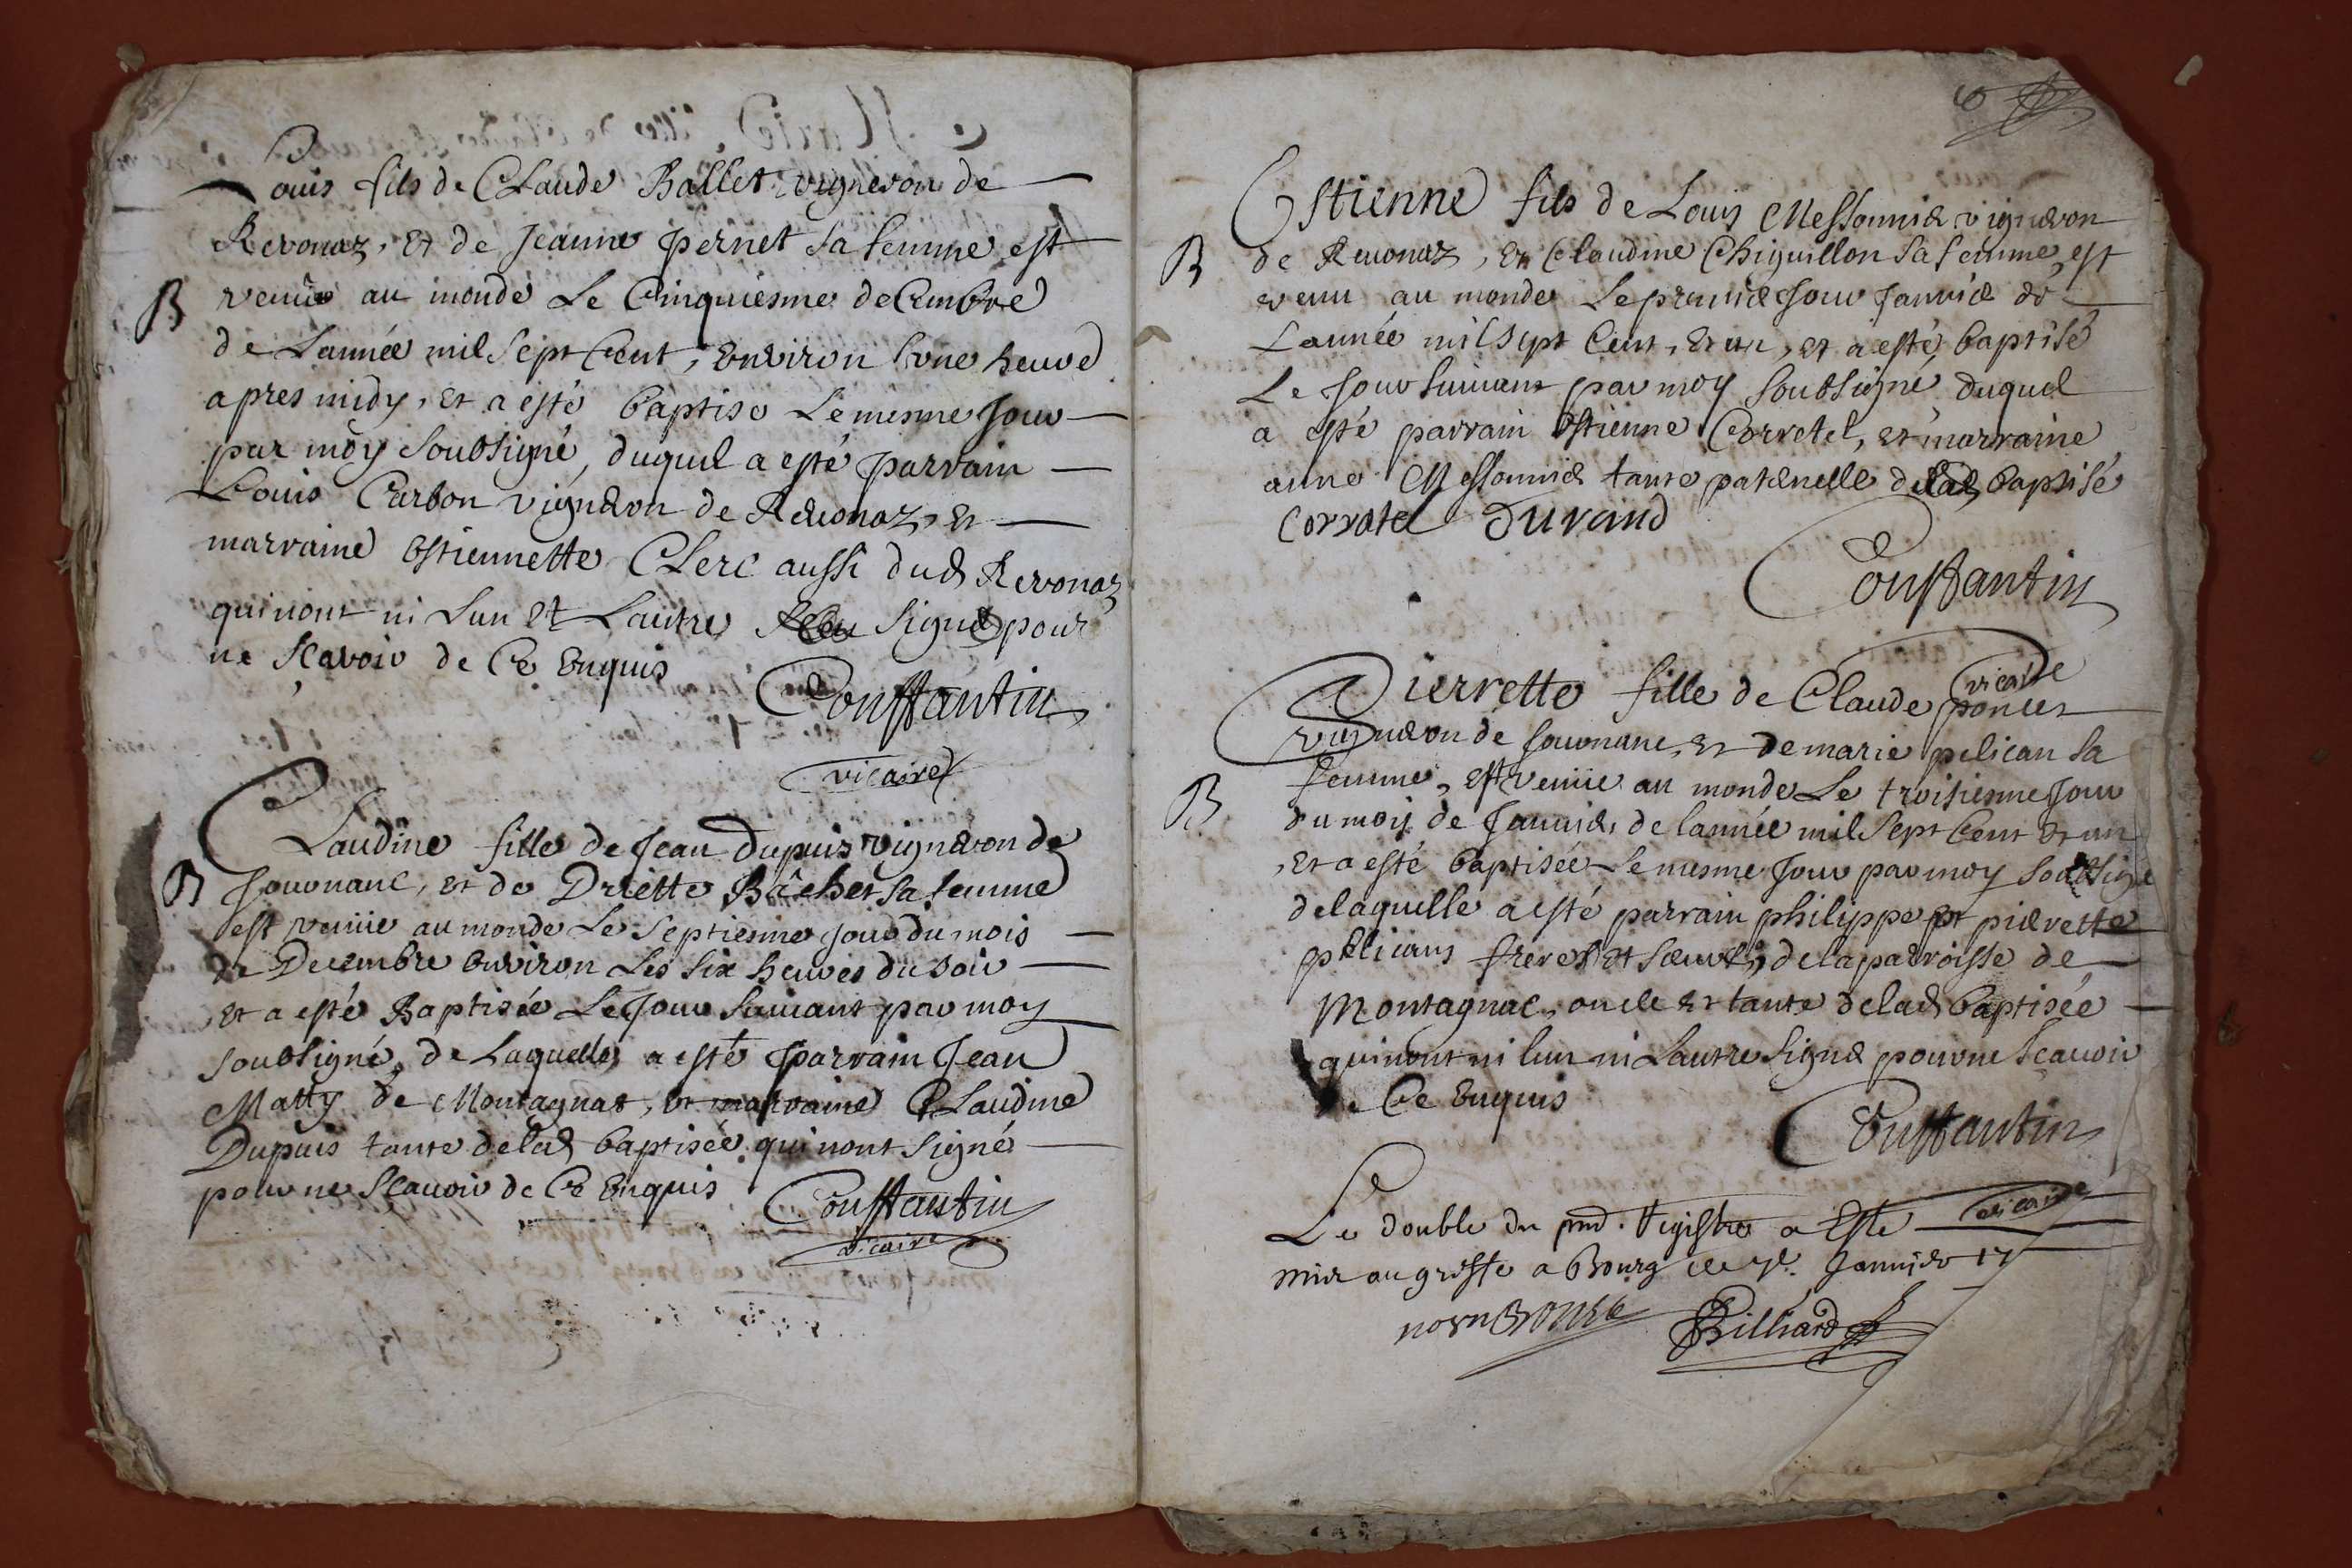 Louis fils de Claude Ballet vigneron de
Revonaz, et de Jeanne pernet sa femme est
B venüe au monde Le Cinquiesme deCembre
de Lannée mil sept Cent, Environ Lone heure
apres midy, et a esté baptise Le mesme Jour
par moy soubsigné, duquel a esté parrain
Louis Carbon vigneron de Revonaz, et
marraine Estiennette Clerc aussi dud Revonaz
qui nont ni Lun et Lautre signé pour
ne sçavoir de Ce Enquis
Constantin
vicaire
Claudine fille de Jean Dupuis vigneron de
B Jouvnanc, et de Driette Bâchet sa femme
est venüe au monde Le septiesme jour du mois
de Decembre Environ Les six heures du soir
et a esté Baptisée Le Jour suivant par moy
soubsigné, de Laquelle a esté parrain Jean
Matty de Montagnat, et marraine Claudine
Dupuis tante delad baptisée qui nont signé
pour ne sçavoir de Ce Enquis
Constantin
vicaire
6
Estienne fils de Louis Messonnier vigneron
B de Revonaz, Et Claudine Chiguillon sa femme, est
venu au monde Le premier Jour Janvier de
Lannée mil sept Cent, et un, et a esté baptisé
Le Jour suivant par moy soubsigné duquel
a esté parrain Estienne Corretel, et marraine
anne Messonnier tante paternelle baptisé
Corratel Durand
Constantin
vicaire
Pierrette fille de Claude poncet
vigneron de Jouvnanc, et de marie pelican sa
femme, est venüe au monde Le troisiesme Jour
B du mois de Janvier de lannée mil sept Cent et un
, Et a esté baptisée Le mesme Jour par moy soubsigné
delaquelle a esté parrain philippe et pierrette
pelicans freres et soeurs, de la parroisse de
Montagnac, oncle et tante delad baptisée
qui nont ni lun ni Lautre signé pour ne sçavoir
de Ce Enquis
Constantin
vicaire
Le double du pnd. Registre a Esté
mis au greffe a Bourg le 7e. Janvier 17
Billiard